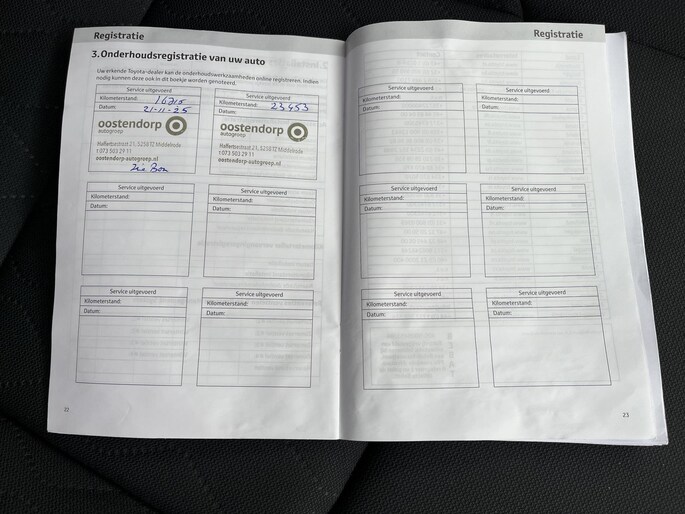 Registratie
3. Onderhoudsregistratie van uw auto
Uw erkende Toyota-dealer kan de onderhoudswerkzaamheden online registreren. Indien
nodig kunnen deze ook in dit boekje worden genoteerd.
Service uitgevoerd
Kilometerstand: 16215
Datum: 21-11-25
oostendorp
autogroep
t 073 503 29 11
oostendorp-autogroep.nl
Service uitgevoerd
Kilometerstand: 23453
Datum:
oostendorp
autogroep
t 073 503 29 11
oostendorp-autogroep.nl
Service uitgevoerd
Kilometerstand:
Datum:
Service uitgevoerd
Kilometerstand:
Datum:
Service uitgevoerd
Kilometerstand:
Datum:
Service uitgevoerd
Kilometerstand:
Datum:
22
Registratie
Service uitgevoerd
Kilometerstand:
Datum:
Service uitgevoerd
Kilometerstand:
Datum:
Service uitgevoerd
Kilometerstand:
Datum:
Service uitgevoerd
Kilometerstand:
Datum:
Service uitgevoerd
Kilometerstand:
Datum:
Service uitgevoerd
Kilometerstand:
Datum:
23